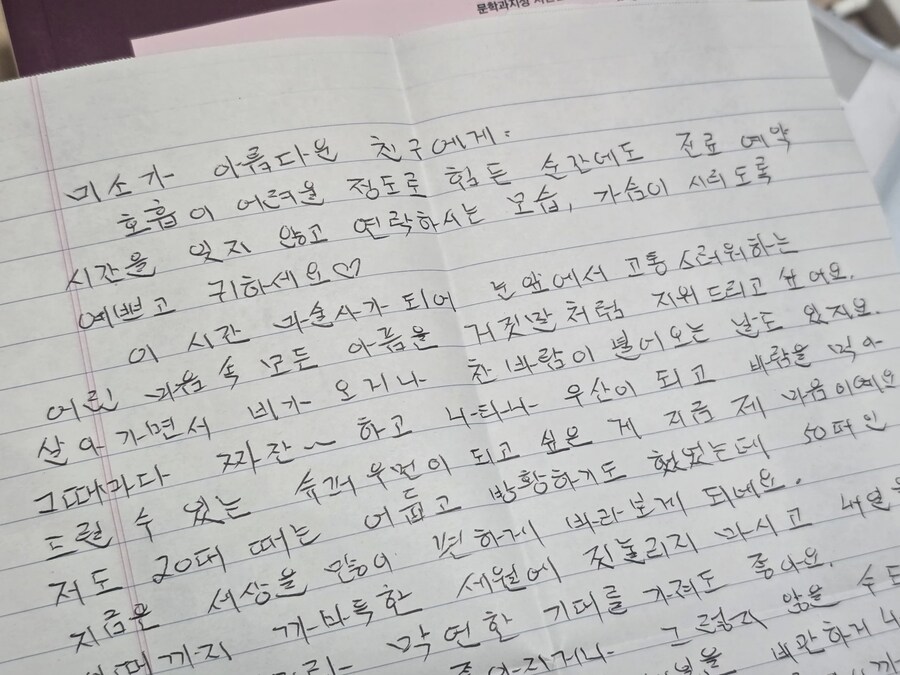 문학과지성 시인선
미소가 아름다운 친구에게:
호흡이 어려울 정도로 힘든 순간에도 진료 예약
시간을 잊지 않고 연락하시는 모습, 가슴이 시리도록
예쁘고 귀하세요♡
이 시간 마술사가 되어 눈앞에서 고통스러워하는
어린 마음 속 모든 아픔을 거짓말처럼 지워드리고 싶어요.
살아가면서 비가 오거나 찬 바람이 불어오는 날도 있지요.
그때마다 짜잔~ 하고 나타나 우산이 되고 바람을 막아
드릴 수 있는 슈퍼우먼이 되고 싶은 게 지금 제 마음이예요
저도 20대 때는 어둡고 방황하기도 했었는데 50대인
지금은 세상을 많이 편하게 바라보게 되네요.
까마득한 세월에 짓눌리지 마시고 내일
막연한 기대를 가져도 좋아요.
그렇지 않을 수도
비관하거나